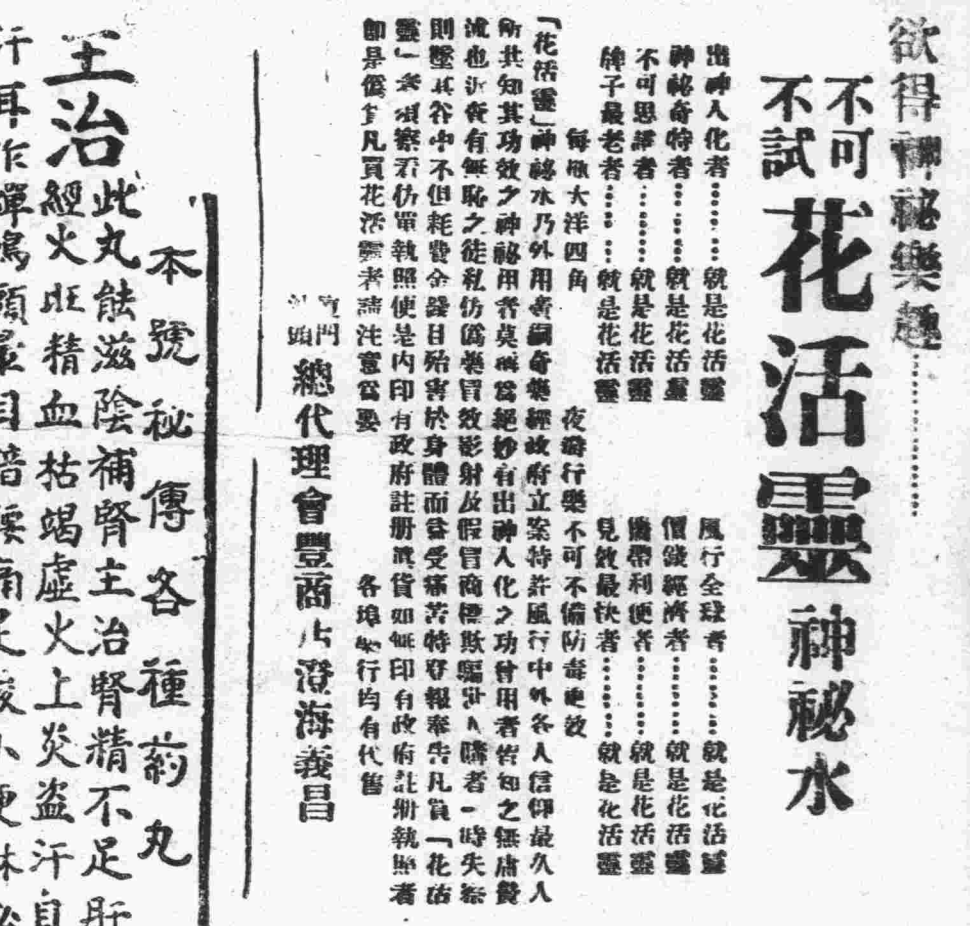 欲得神祕樂趣…………
不可
不試
花活靈神祕水
出神人化者……就是花活靈
神祕奇特者……就是花活靈
不可思議者……就是花活靈
牌子最老者……就是花活靈
風行全球者……就是花活靈
價錢經濟者……就是花活靈
攜帶利便者……就是花活靈
見效最快者……就是花活靈
每瓶大洋四角 夜遊行樂不可不備防毒更效
「花活靈」神祕水乃外用奇藥經政府立案特許風行中外各人信仰最久人
所共知其功效之神祕用者莫稱為絕妙有出神人化之功曾用者皆知之無庸贅
述也近查有無恥之徒私仿偽藥冒效影射及假冒商標欺騙世人購者一時失察
則墮其谷中不但耗費金錢且殆害於身體而益受痛苦特登報奉告凡買「花活
靈」者須察看仿單執照便是內印有政府註册眞貨如無印有政府註册執照者
即是偽貨凡買花活靈者請注意為要 各埠藥行均有代售
廈門
汕頭
總代理會豐商店 澄海義昌
本號秘傳各種葯丸
主治
此丸能滋陰補腎主治腎精不足肝
經火旺精血枯竭虛火上炎盜汗自
汗耳作蟬鳴頭暈目暗腰痛足酸小便淋